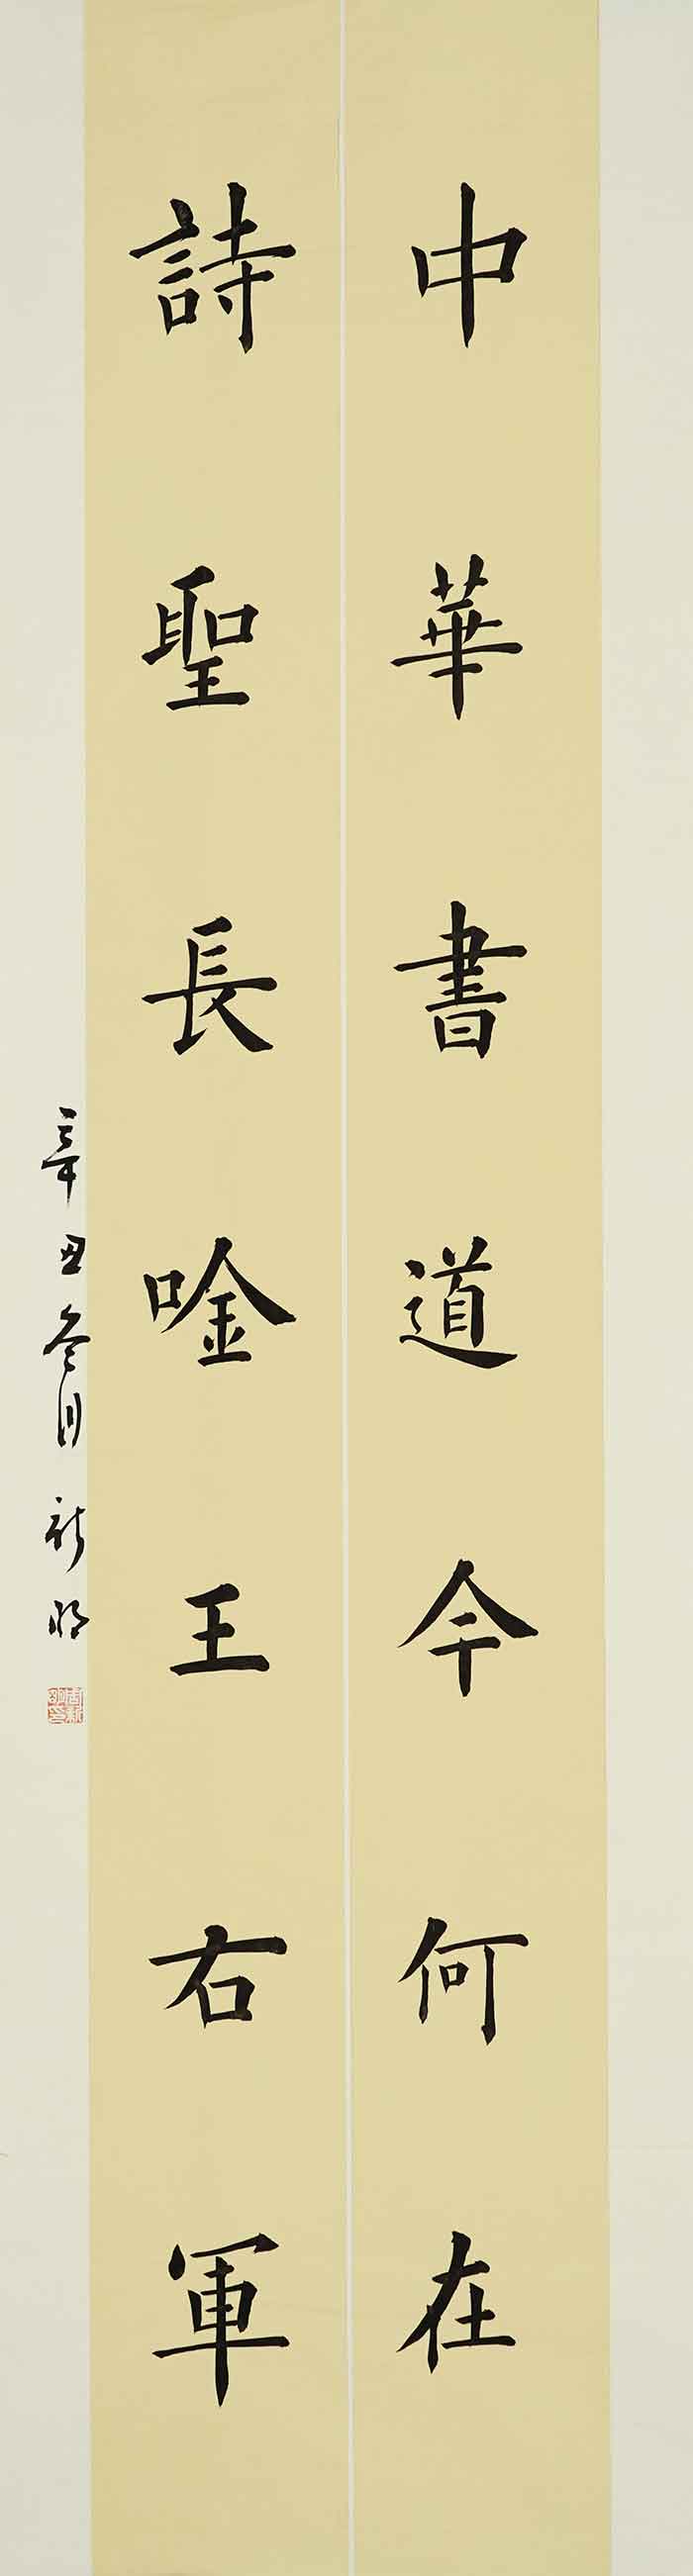 中華書道今何在
詩聖長唫王右軍
辛丑月新明
周新明印